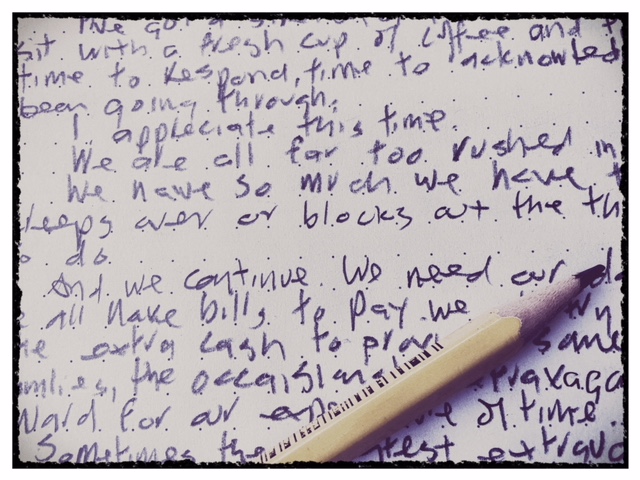 I've got a
sit with a fresh cup of coffee and
time to respond, time to acknowled
been going through.
I appreciate this time.
We are all far too rushed in
We have so much we have t
leeps over or blocks out the th
o do.
And we continue. We need our da
e all have bills to pay. We try
me extra cash to provi some
milies, the occaisiana travaga
ward for our e of time.
Sometimes the test extrava